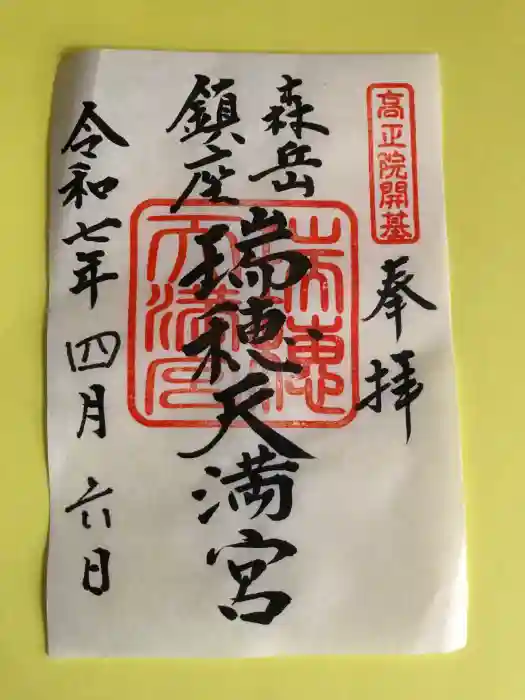 高正院開基
奉拝
森岳
鎮座
瑞穂天満宮
令和七年 四月 六日